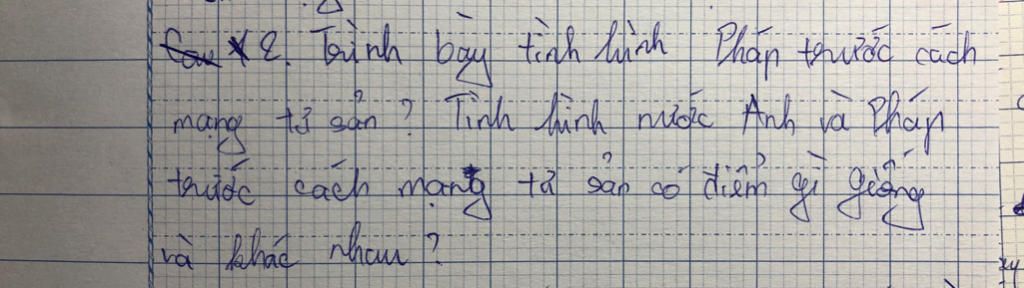 2. Trình bày tình hình Pháp trước cách
mạng tư sản? Tình hình nước Anh và Pháp
trước cách mạng tư sản có điểm gì giống
và khác nhau?